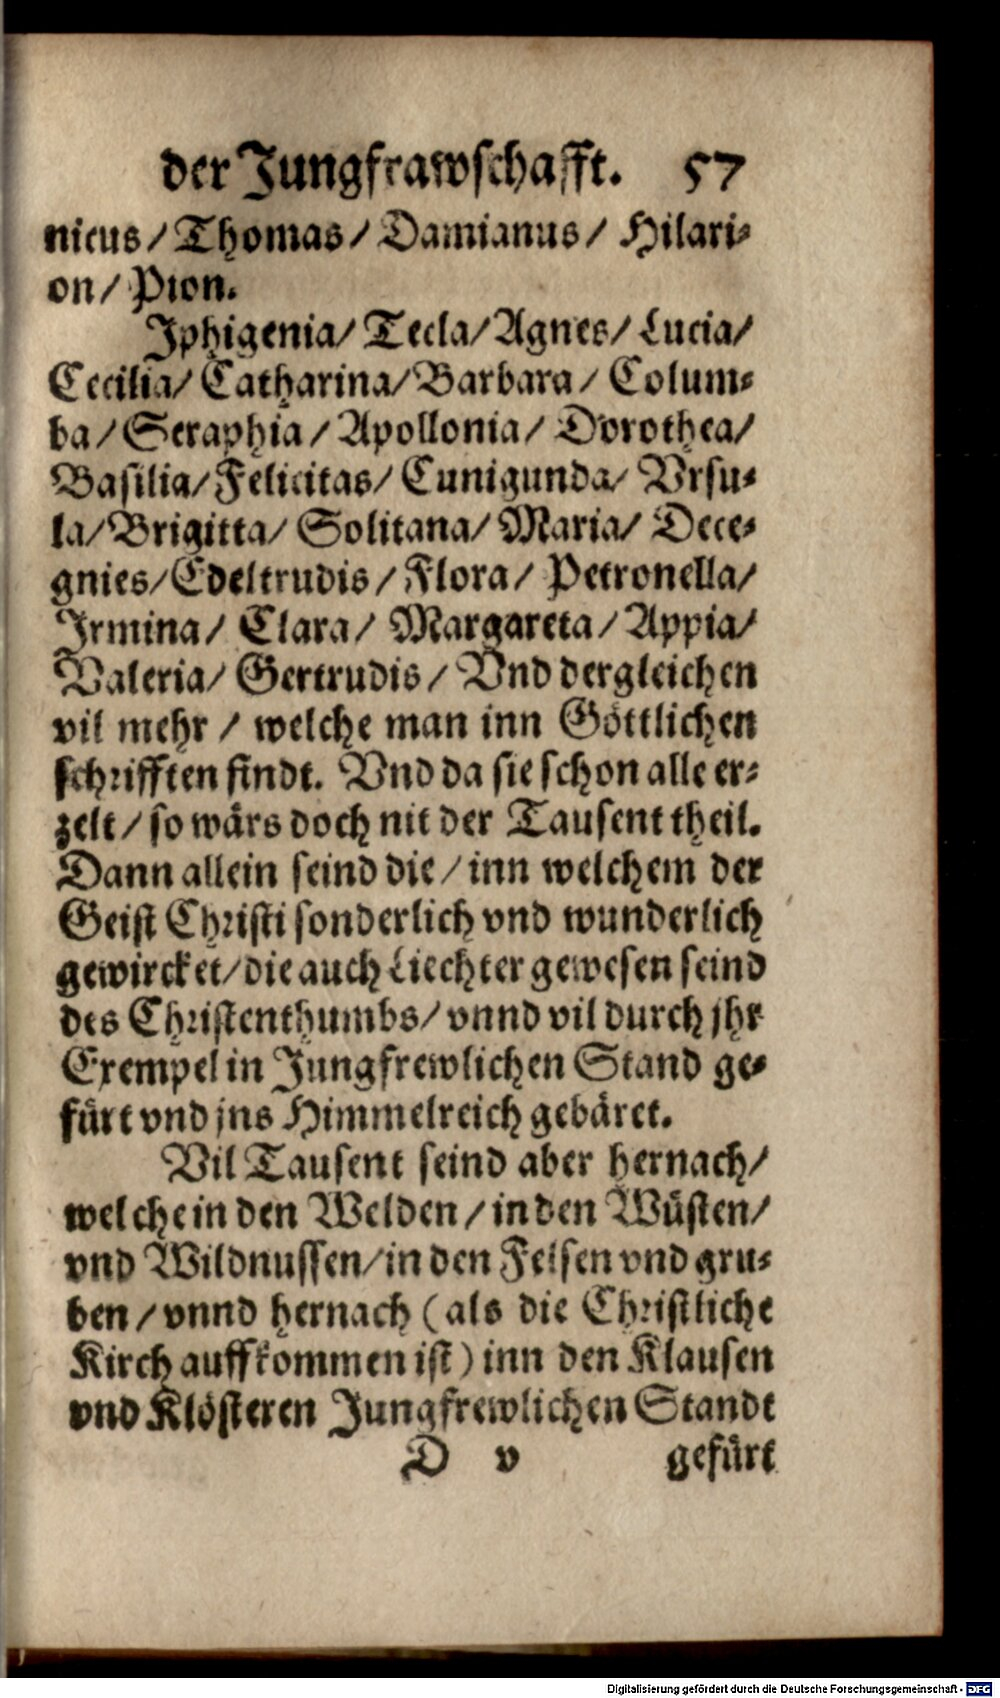 der Jungfrawschafft. 57
nicus / Thomas / Damianus / Hilari-
on / Pion.
Iphigenia / Tecla / Agnes / Lucia /
Cecilia / Catharina / Barbara / Colum-
ba / Seraphia / Apollonia / Dorothea /
Basilia / Felicitas / Cunigunda / Vrsu-
la / Brigitta / Solitana / Maria / Dece-
gnies / Edeltrudis / Flora / Petronella /
Irmina / Clara / Margareta / Appia /
Valeria / Gertrudis / Vnd dergleichen
vil mehr / welche man inn Göttlichen
schrifften findt. Vnd da sie schon alle er-
zelt / so wärs doch nit der Tausent theil.
Dann allein seind die / inn welchem der
Geist Christi sonderlich vnd wunderlich
gewircket / die auch Liechter gewesen seind
des Christenthumbs / vnnd vil durch jhr
Exempel in Jungfrewlichen Stand ge-
fürt vnd jns Himmelreich gebäret.
Vil Tausent seind aber hernach /
welche in den Welden / in den Wüsten /
vnd Wildnussen / in den Felsen vnd gru-
ben / vnnd hernach (als die Christliche
Kirch auffkommen ist) inn den Klausen
vnd Klösteren Jungfrewlichen Standt
D v gefürt
Digitalisierung gefördert durch die Deutsche Forschungsgemeinschaft - DFG